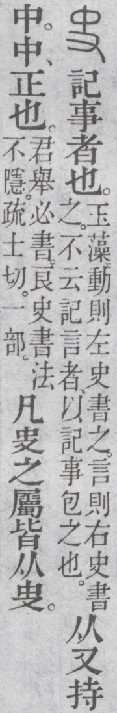 㕜 記事者也。玉藻動則左史書之。言則右史書之。不云記言者、以記事包之也。从又持
中。中、正也。君舉必書。良史書法不隱。疏士切。一部。凡㕜之屬皆从㕜。